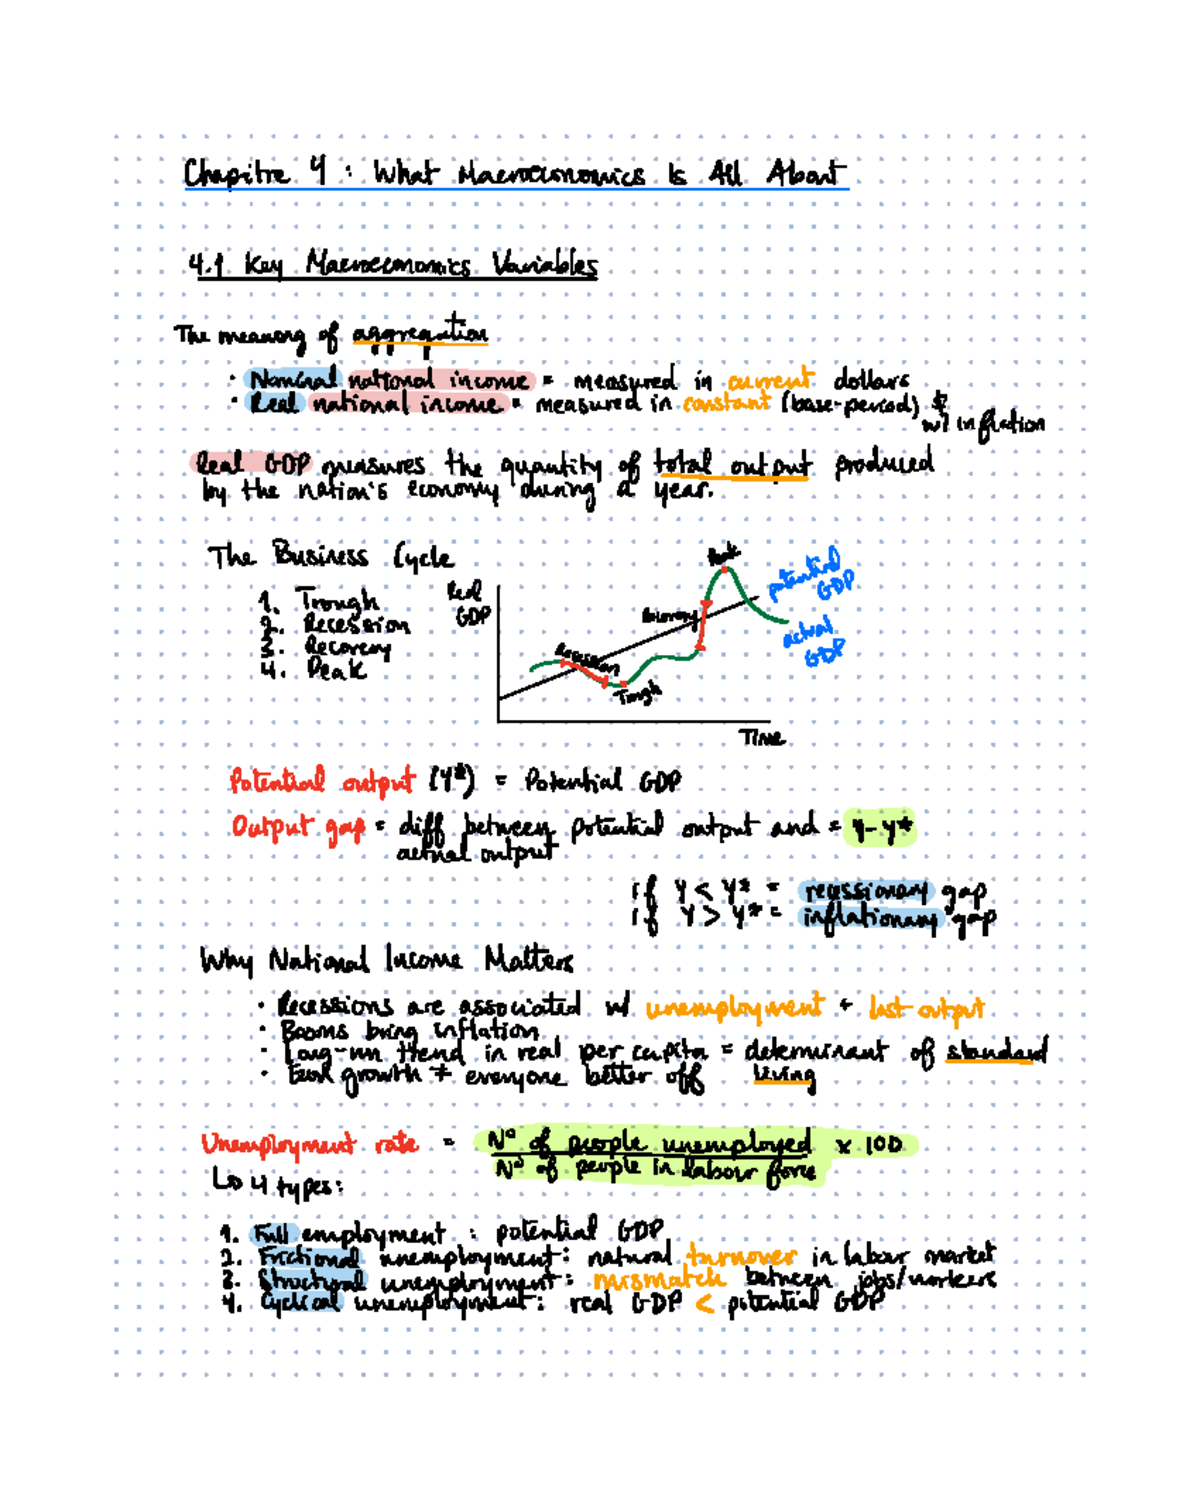 Chapitre 4 : What Macroeconomics Is All About
4.1 Key Macroeconomics Variables
The meaning of aggregation
· Nominal national income = measured in current dollars
· Real national income = measured in constant (base-period) $
w/ inflation
Real GDP measures the quantity of total output produced
by the nation's economy during a year.
The Business Cycle
1. Trough
2. Recession
3. Recovery
4. Peak
Real
GDP
Peak
potential
GDP
Recovery
actual
GDP
Recession
Trough
Time
Potential output (Y*) = Potential GDP
Output gap = diff between potential output and = Y-Y*
actual output
if Y < Y* = recessionary gap
if Y > Y* = inflationary gap
Why National Income Matters
· Recessions are associated w/ unemployment + lost output
· Booms bring inflation
· Long-run trend in real per capita = determinant of standard
living
· Econ growth ≠ everyone better off
Unemployment rate = N° of people unemployed x 100
N° of people in labour force
↳ 4 types:
1. Full employment : potential GDP
2. Frictional unemployment: natural turnover in labour market
3. Structural unemployment: mismatch between jobs/workers
4. Cyclical unemployment: real GDP < potential GDP